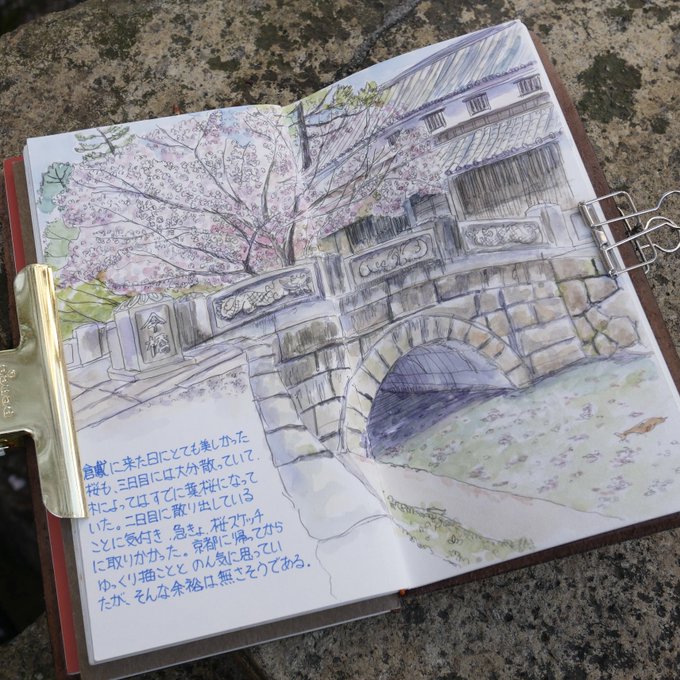 今橋
倉敷に来た日にとても美しかった
桜も、三日目には大分散っていて、
木によってはすでに葉桜になって
いた。二日目に散り出している
ことに気付き、急きょ、桜スケッチ
に取りかかった。京都に帰ってから
ゆっくり描こうと のん気に思ってい
たが、そんな余裕は無さそうである。